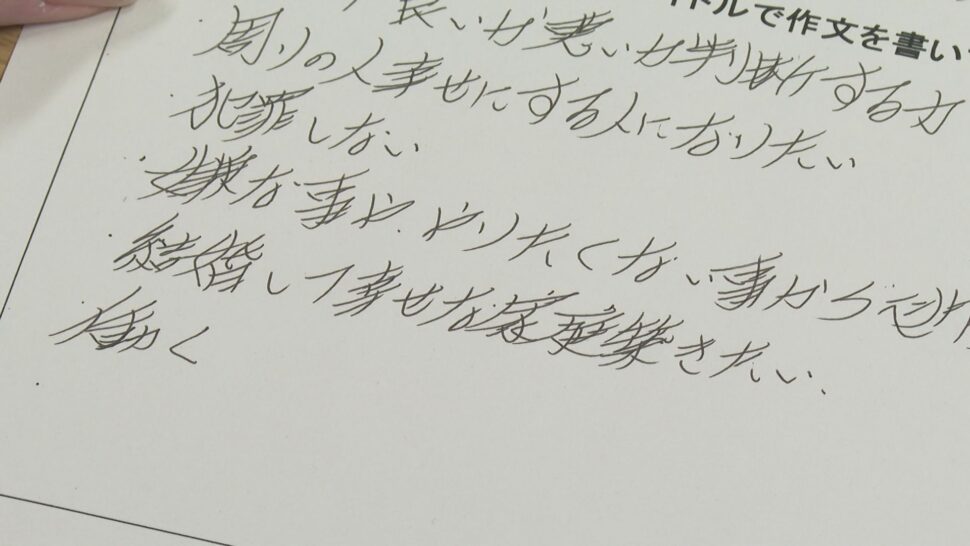 イトルで作文を書い
良いか悪いか判断する力
・周りの人幸せにする人になりたい
・犯罪しない
・嫌な事や、やりたくない事から逃げ
・結婚して幸せな家庭築きたい、
・働く